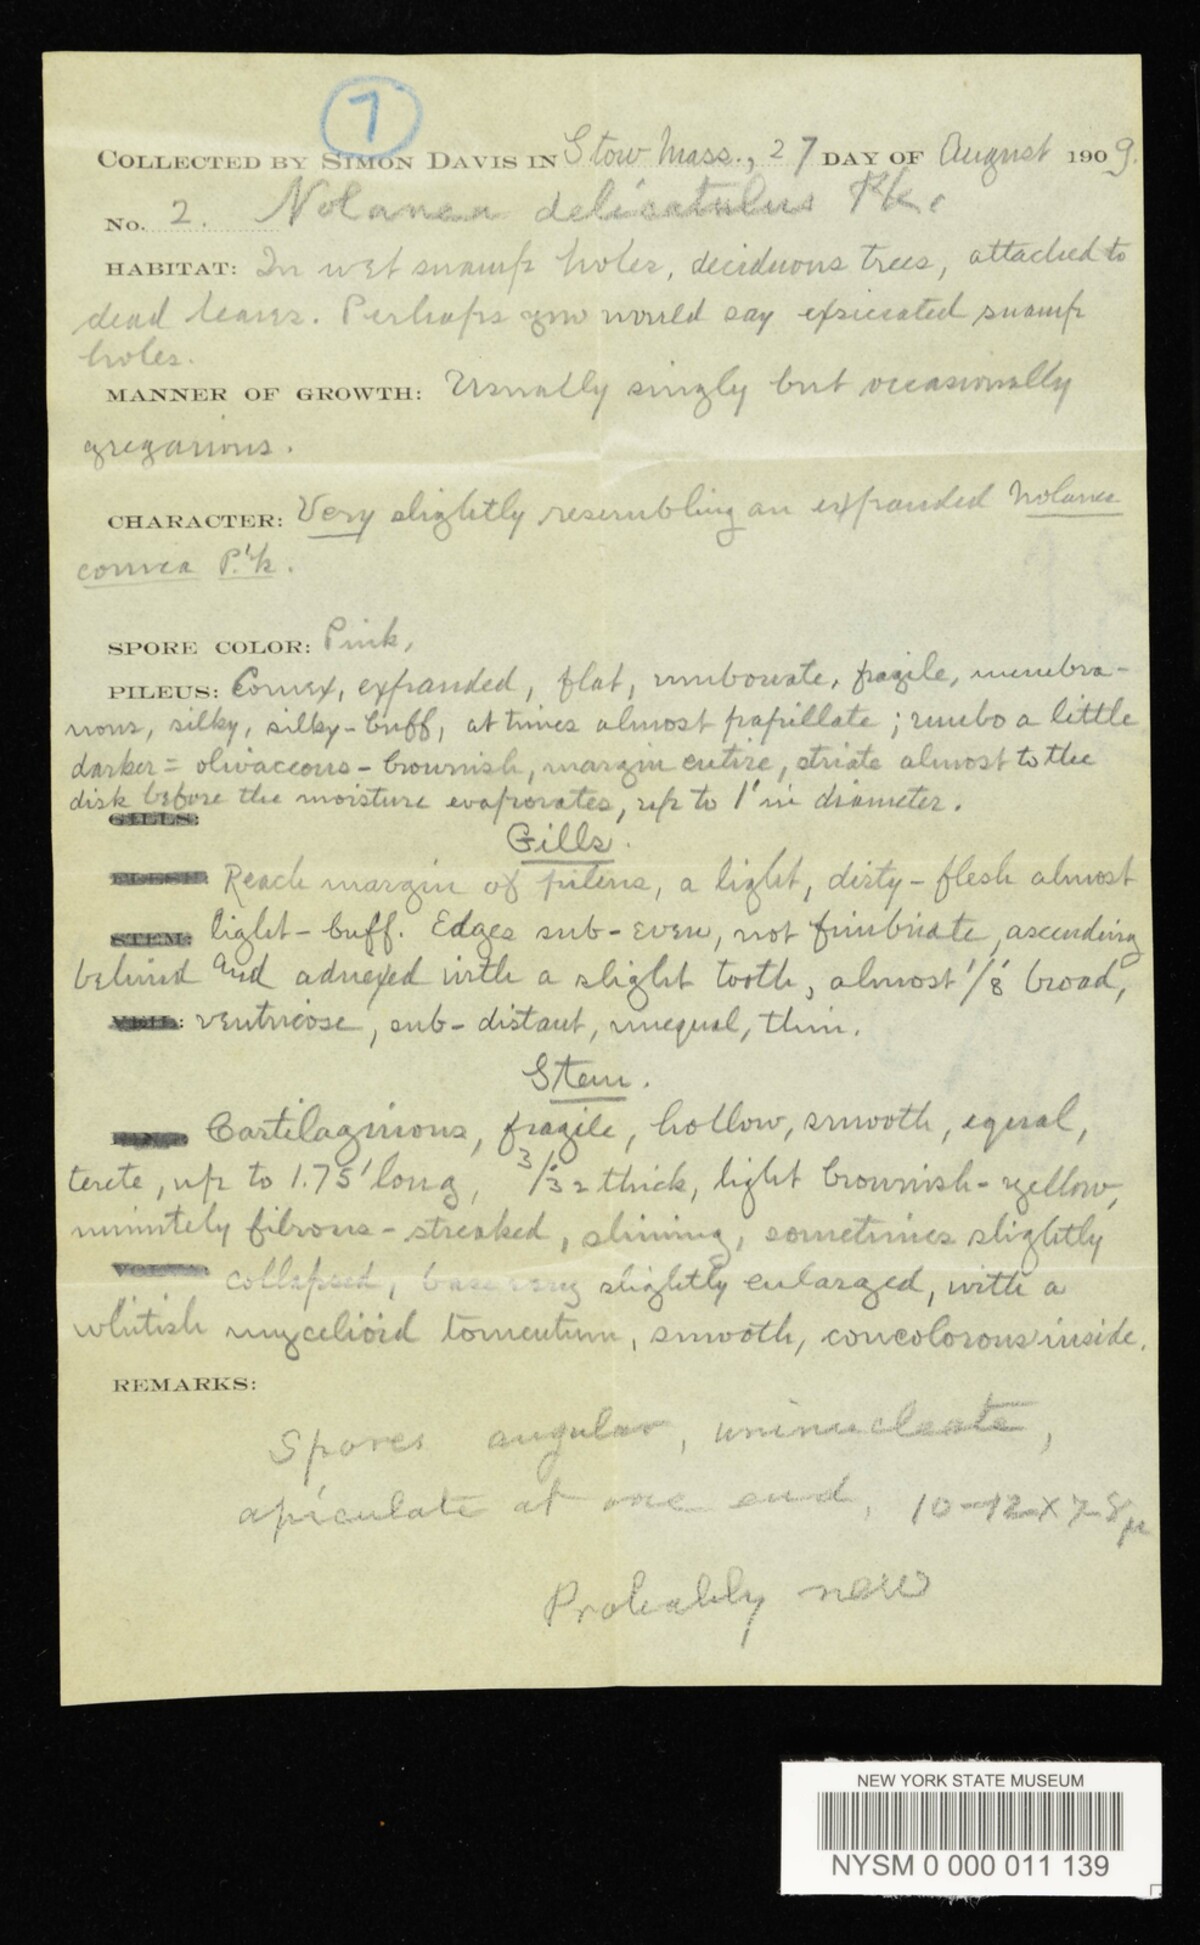 7
COLLECTED BY SIMON DAVIS IN Stow Mass., 27 DAY OF August 1909.
No. 2. Nolanea delicatulus Pk.
HABITAT: In wet swamp holes, deciduous trees, attached to
dead leaves. Perhaps you would say exsiccated swamp
holes.
MANNER OF GROWTH: Usually singly but occasionally
gregarious.
CHARACTER: Very slightly resembling an expanded Nolanea
conica P'k.
SPORE COLOR: Pink,
PILEUS: Convex, expanded, flat, umbonate, fragile, membra-
nous, silky, silky-buff, at times almost papillate; umbo a little
darker = olivaceous-brownish, margin entire, striate almost to the
disk before the moisture evaporates, up to 1' in diameter.
GILLS:
Gills.
Reach margin of pileus, a light, dirty-flesh almost
STEM: light-buff. Edges sub-even, not fimbriate, ascending
behind and adnexed with a slight tooth, almost 1/8' broad,
VEIL: ventricose, sub-distant, unequal, thin.
Stem.
Cartilaginous, fragile, hollow, smooth, equal,
terete, up to 1.75' long, 3/32 thick, light brownish-yellow,
minutely fibrous-streaked, shining, sometimes slightly
collapsed, base very slightly enlarged, with a
whitish mycelioid tomentum, smooth, concolorous inside.
REMARKS:
Spores angular, uninucleate,
apiculate at one end, 10-12 x 7-8µ
Probably new
NEW YORK STATE MUSEUM
NYSM 0 000 011 139